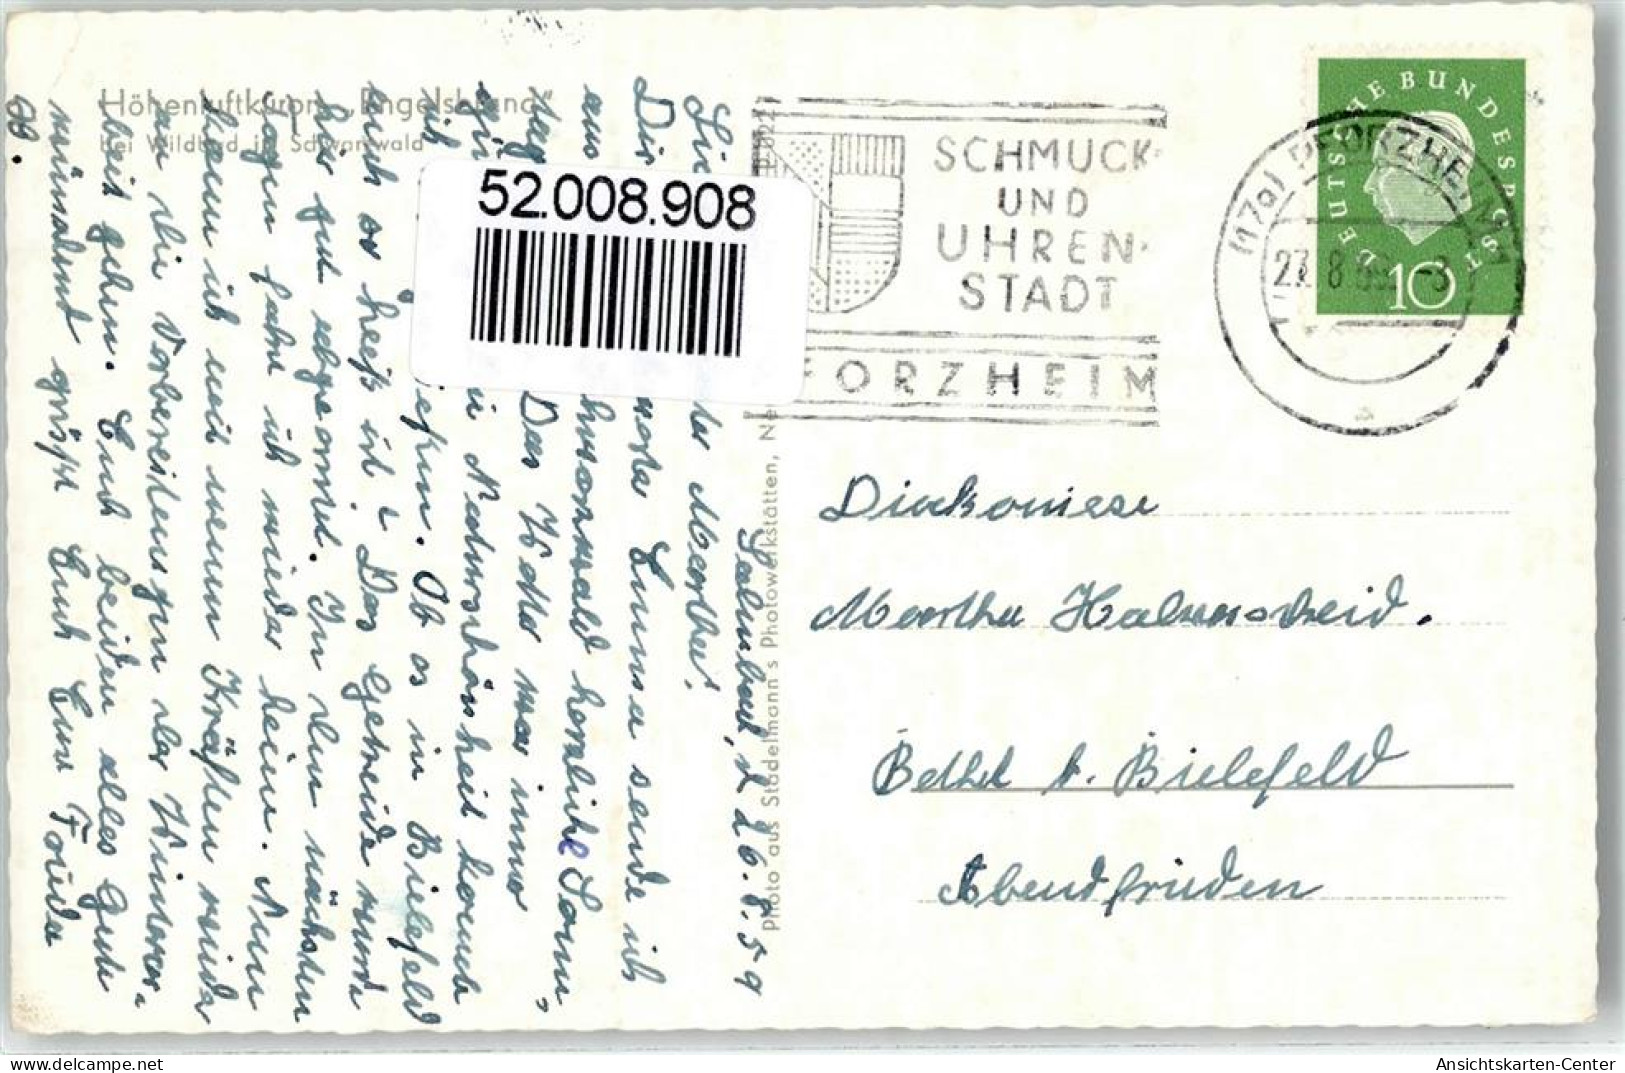 Höhenluftkurort „Engelsbrand“
bei Wildbad im Schwarzwald
52.008.908
SCHMUCK-
UND
UHREN-
STADT
FORZHEIM
(17a) PFORZHEIM
27.8.59
DEUTSCHE BUNDESPOST
10
photo aus Stadelmann's Photowerkstätten, Ne
Salmbach, d. 26.8.59
Martha!
Dir Emma sende ich
aus hwarzwald herzliche Sonn-
tag Das Wetter war immer
in Naturschönheit konnte
ich Ob es in Bielefeld
auch so heiß ist? Das Getreide wurde
hier gut abgeerntet. In den nächsten
Tagen fahre ich wieder heim. Nun
kann ich mit neuen Kräften wieder
an die Vorbereitungen der Winterar-
beit gehen. Euch beiden alles Gute
wünschend grüßt Euch Eure Frieda
B.
Diakonisse
Martha Halverscheid.
Bethel b. Bielefeld
Abendfrieden
AnsichtsKarten-Center